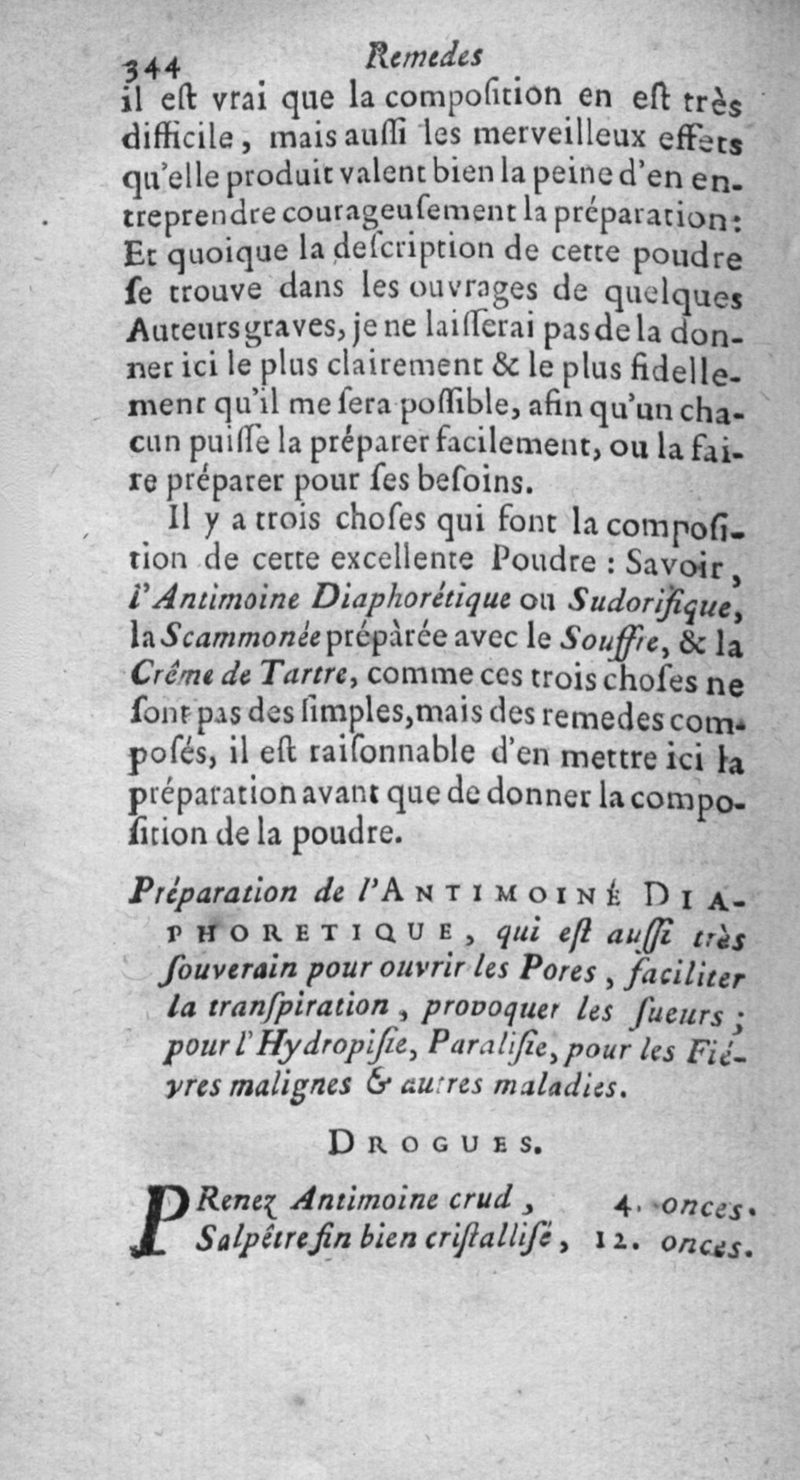 344 Remedes
il eſt vrai que la compoſition en eſt très
difficile, mais auſſi les merveilleux effets
qu'elle produit valent bien la peine d'en en-
treprendre courageuſement la préparation:
Et quoique la deſcription de cette poudre
ſe trouve dans les ouvrages de quelques
Auteurs graves, je ne laiſſerai pas de la don-
ner ici le plus clairement & le plus fidelle-
ment qu'il me ſera poſſible, afin qu'un cha-
cun puiſſe la préparer facilement, ou la fai-
re préparer pour ſes beſoins.
Il y a trois choſes qui font la compoſi-
tion de cette excellente Poudre : Savoir,
l'Antimoine Diaphorétique ou Sudorifique,
la Scammonée prépàrée avec le Souffre, & la
Crême de Tartre, comme ces trois choſes ne
ſont pas des ſimples, mais des remedes com-
poſés, il eſt raiſonnable d'en mettre ici la
préparation avant que de donner la compo-
ſition de la poudre.
Préparation de l'ANTIMOINÉ DIA-
PHORETIQUE, qui eſt auſſi très
ſouverain pour ouvrir les Pores, faciliter
la tranſpiration, provoquer les ſueurs;
pour l'Hydropiſie, Paraliſie, pour les Fié-
vres malignes & autres maladies.
DROGUES.
PRenez Antimoine crud, 4. onces.
Salpêtre fin bien criſtalliſé, 12. onces.